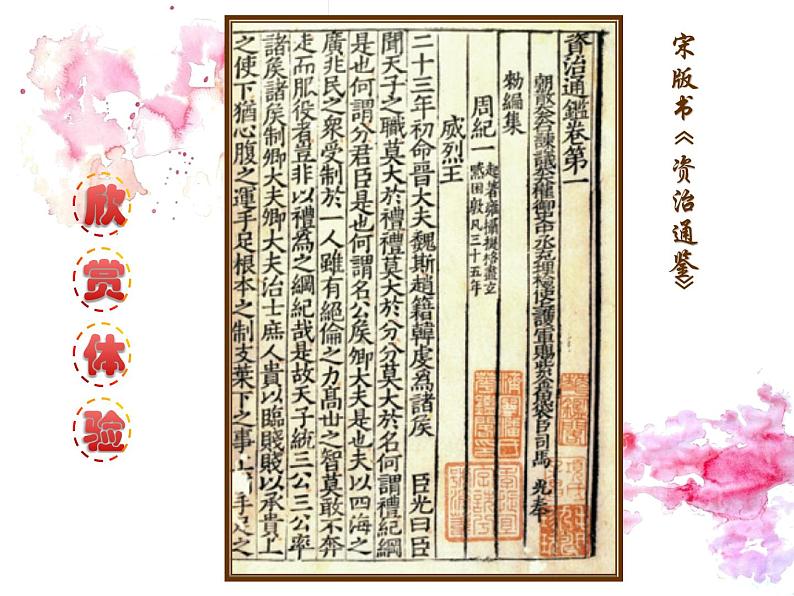 欣赏体验
宋版书《资治通鉴》
資治通鑑卷第一
朝散大夫右諫議大夫權御史中丞充理檢使上護軍賜紫金魚袋臣司馬 光奉
勑編集
周紀一
起著雍攝提格盡玄
黓困敦凡三十五年
威烈王
二十三年初命晉大夫魏斯趙籍韓虔為諸矦 臣光曰臣
聞天子之職莫大於禮禮莫大於分分莫大於名何謂禮紀綱
是也何謂分君臣是也何謂名公矦卿大夫是也夫以四海之
廣兆民之衆受制於一人雖有絕倫之力髙世之智莫敢不奔
走而服役者豈非以禮為之綱紀哉是故天子統三公三公率
諸矦諸矦制卿大夫卿大夫治士庶人貴以臨賤賤以承貴上
之使下猶心腹之運手足根本之制支葉下之事上